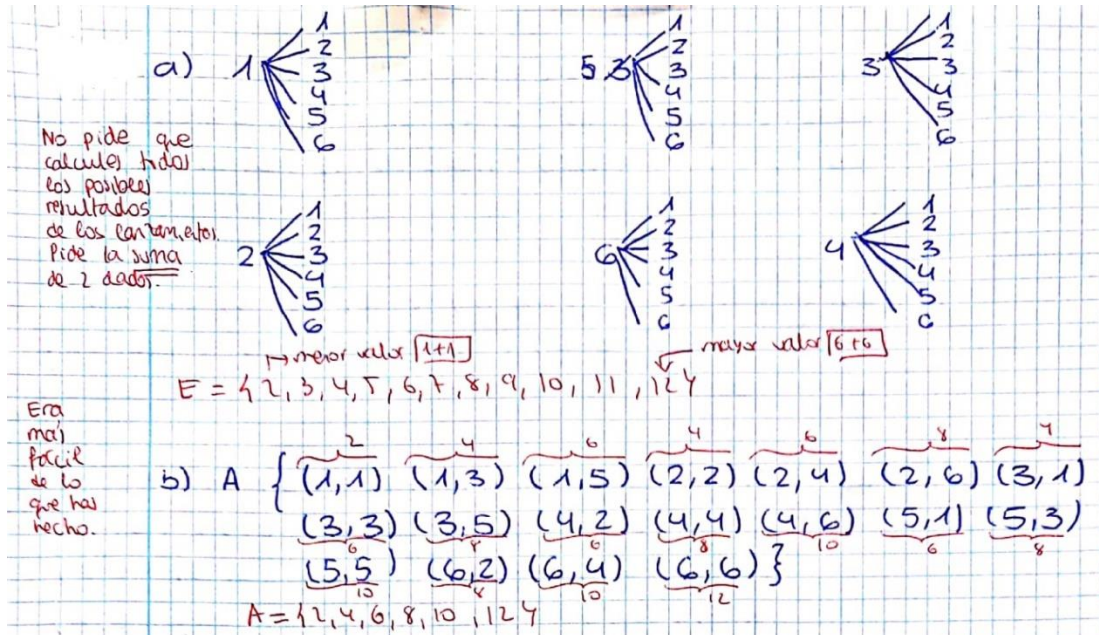 a) 1 1 2 3 4 5 6
5 3 1 2 3 4 5 6
3 1 2 3 4 5 6
No pide que
calcules todos
los posibles
resultados
de los lanzamientos.
Pide la suma
de 2 dados.
2 1 2 3 4 5 6
6 1 2 3 4 5 6
4 1 2 3 4 5 6
menor valor 1+1
mayor valor 6+6
E = { 2, 3, 4, 5, 6, 7, 8, 9, 10, 11, 12 }
Era
más
fácil
de lo
que has
hecho.
2 4 6 4 6 8 4
b) A { (1,1) (1,3) (1,5) (2,2) (2,4) (2,6) (3,1)
(3,3) (3,5) (4,2) (4,4) (4,6) (5,1) (5,3)
6 8 6 8 10 6 8
(5,5) (6,2) (6,4) (6,6) }
10 8 10 12
A = { 2, 4, 6, 8, 10, 12 }